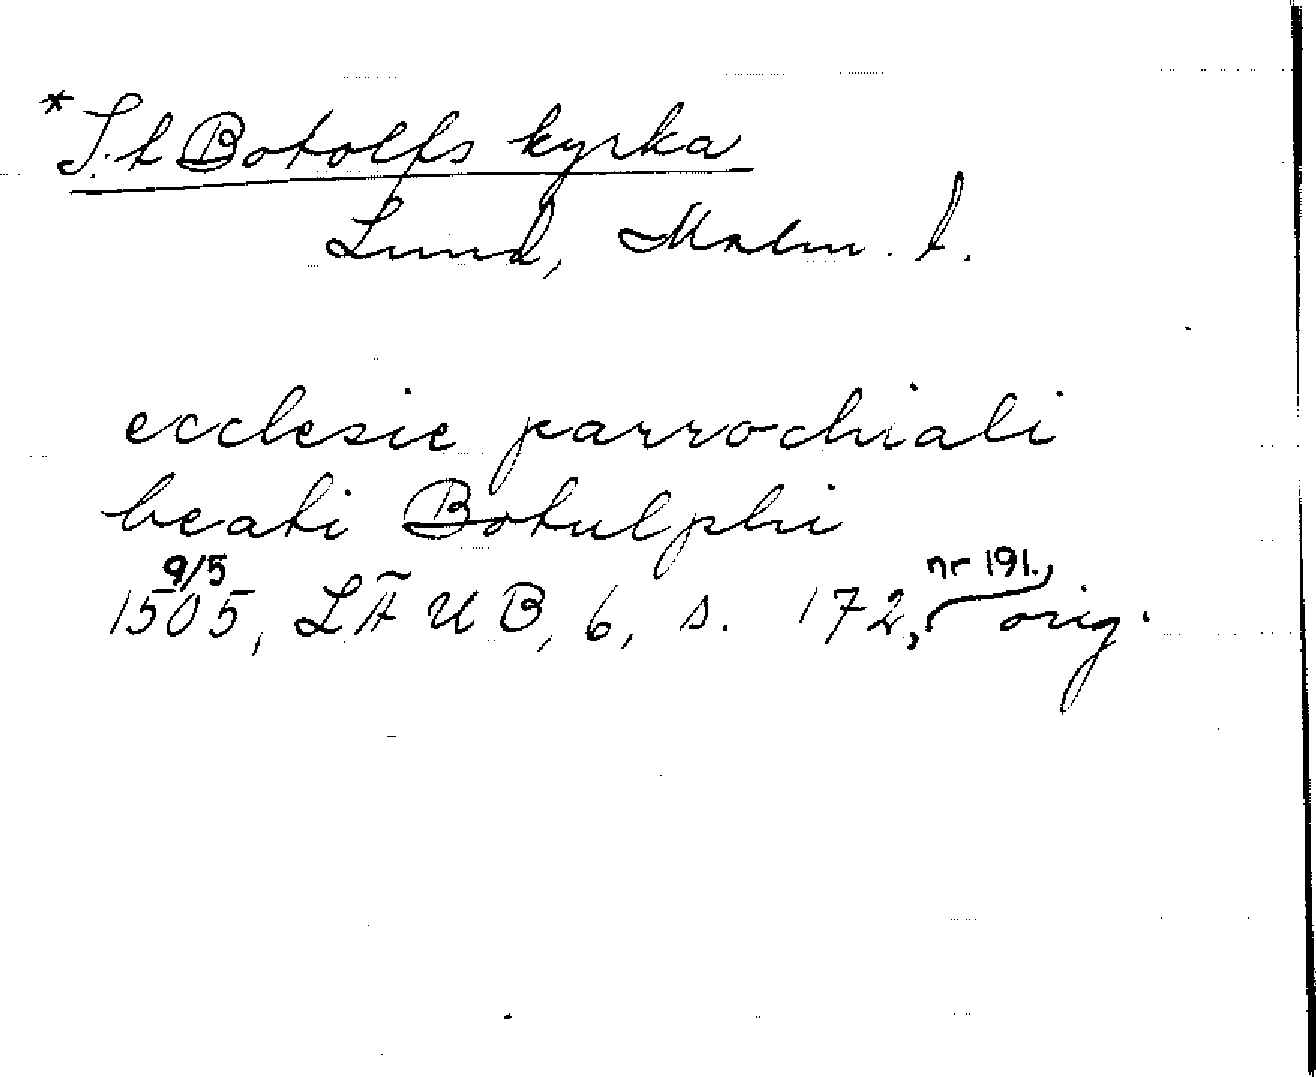 *S:t Botolfs kyrka
Lund, Malm. l.
ecclesie parrochiali
beati Botulphi
9/5 nr 191.,
1505, LÄUB, 6, s. 172, orig.